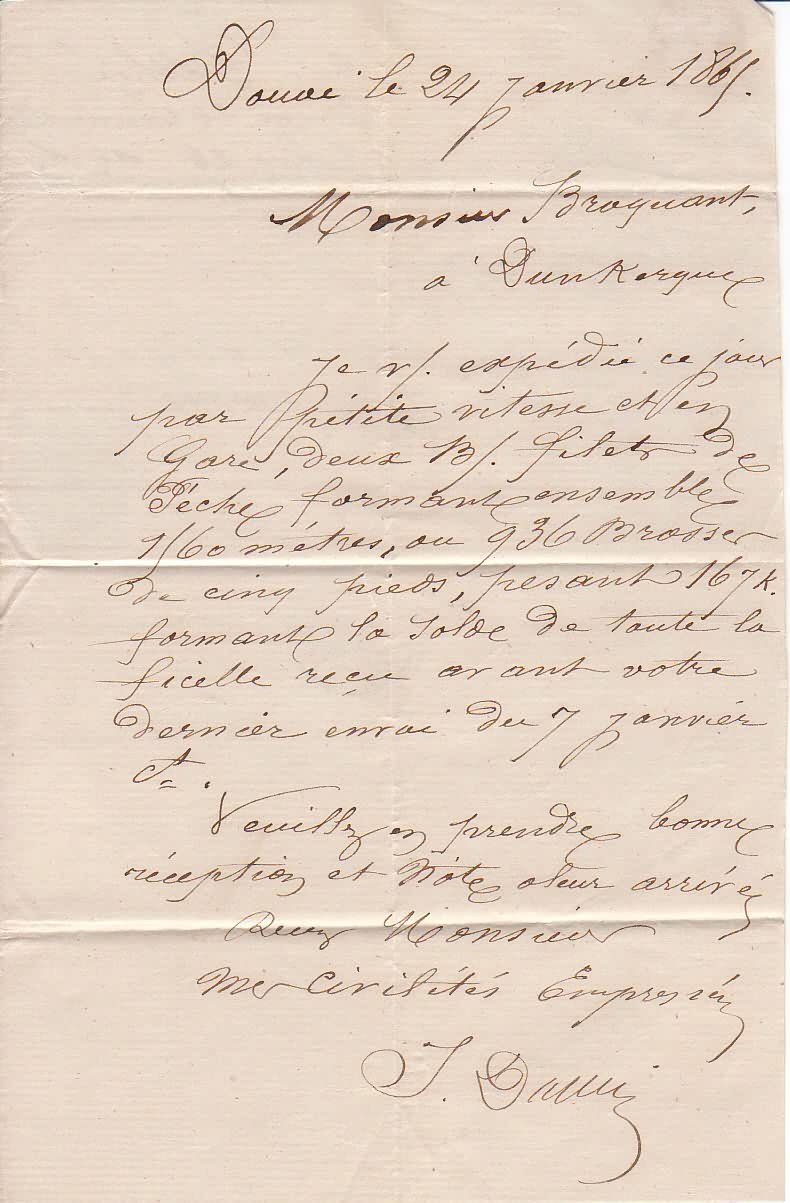 Douai le 24 janvier 1865.
Monsieur Broquant,
à Dunkerque
Je v/. expédie ce jour
par pétite vitesse et en
Gare, deux B/. filets de
Pêche, formant ensemble
1560 mètres, ou 936 Brasses
de cinq pieds, pesant 167 k.
formant la solde de toute la
ficelle reçue avant votre
dernier envoi du 7 janvier
ct.
Veuillez en prendre bonne
réception et Note à leur arrivée
Recevez Monsieur
mes Civilités Empressées